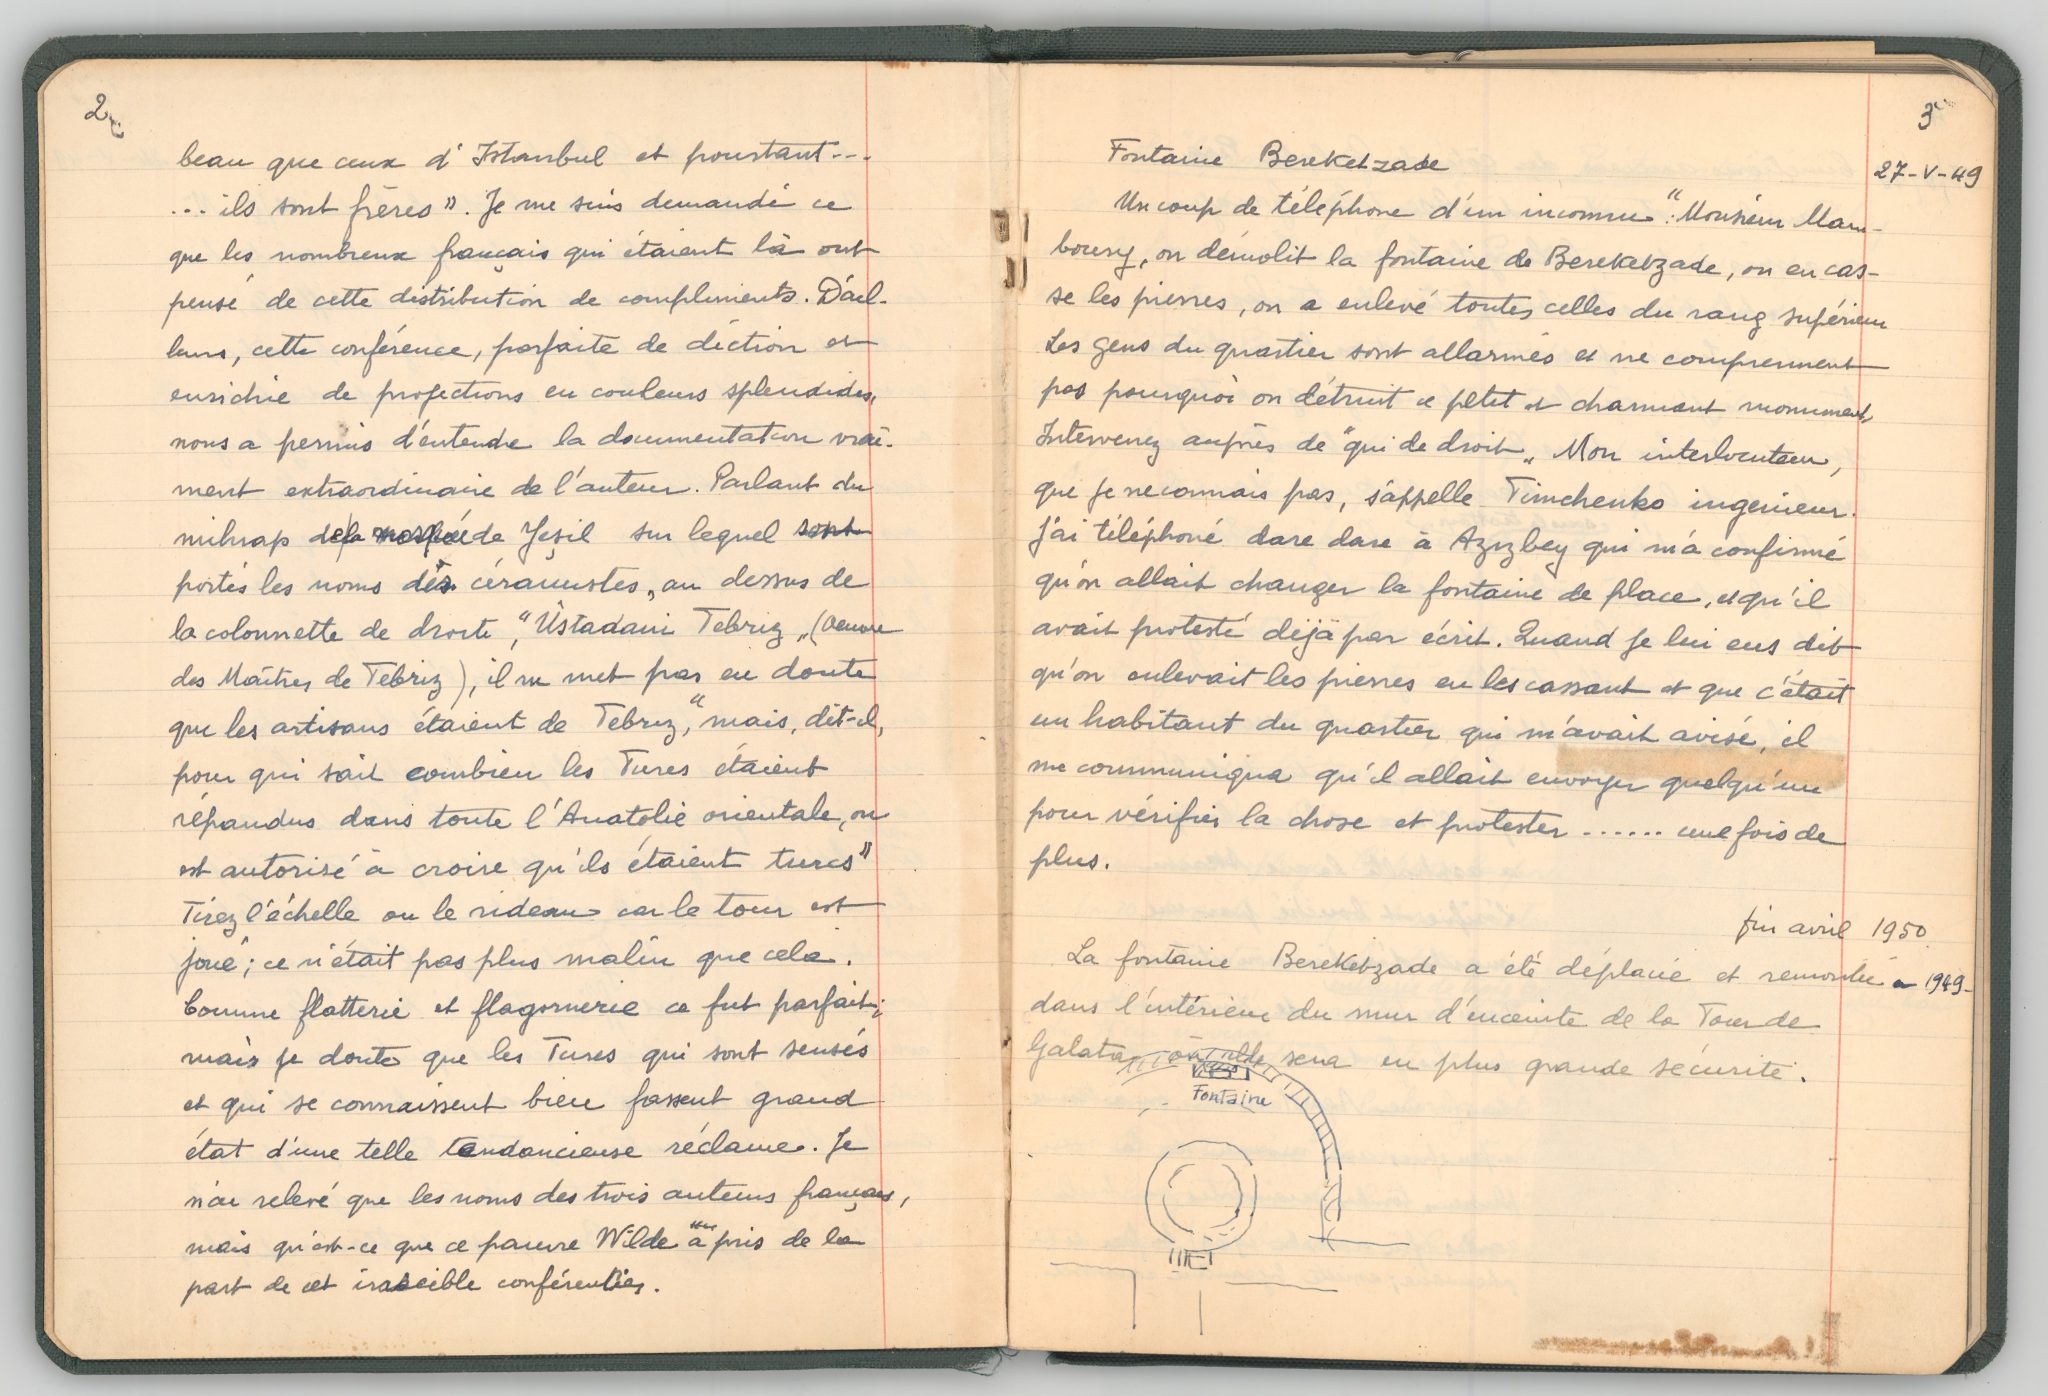 2
beau que ceux d'Istanbul et pourtant...
... ils sont frères". Je me suis demandé ce
que les nombreux français qui étaient là ont
pensé de cette distribution de compliments. D'ail-
leurs, cette conférence, parfaite de diction et
enrichie de projections en couleurs splendides,
nous a permis d'entendre la documentation vrai-
ment extraordinaire de l'auteur. Parlant du
mihrap de Yeşil sur lequel sont
portés les noms des céramistes, au dessus de
la colonnette de droite, "Üstadani Tebriz" (Oeuvre
des Maîtres de Tébriz), il ne met pas en doute
que les artisans étaient de Tebriz, "mais, dit-il,
pour qui sait combien les Turcs étaient
répandus dans toute l'Anatolie orientale, on
est autorisé à croire qu'ils étaient turcs"
Tirez l'échelle ou le rideau car le tour est
joué; ce n'était pas plus malin que cela.
Comme flatterie et flagornerie ce fut parfait;
mais je doute que les Turcs qui sont sensés
et qui se connaissent bien fassent grand
état d'une telle tendancieuse réclame. Je
n'ai relevé que les noms des trois auteurs français,
mais qu'est-ce que ce pauvre Wilde a pris de la
part de cet irascible conférencier.
3
27-V-49
Fontaine Bereketzade
Un coup de téléphone d'un inconnu: "Monsieur Mam-
boury, on démolit la fontaine de Bereketzade, on en cas-
se les pierres, on a enlevé toutes celles du rang supérieur
Les gens du quartier sont allarmés et ne comprennent
pas pourquoi on détruit ce petit et charmant monument,
Intervenez auprès de "qui de droit" Mon interlocuteur,
que je ne connais pas, s'appelle Timchenko ingenieur.
J'ai téléphoné dare dare à Azizbey qui m'a confirmé
qu'on allait changer la fontaine de place, et qu'il
avait protesté déjà par écrit. Quand je lui eus dit
qu'on enlevait les pierres en les cassant et que c'était
un habitant du quartier qui m'avait avisé, il
me communiqua qu'il allait envoyer quelqu'un
pour vérifier la chose et protester ...... une fois de
plus.
fin avril 1950
La fontaine Bereketzade a été déplacée et remontée en 1949-
dans l'intérieur du mur d'enceinte de la Tour de
Galata où elle sera en plus grande sécurité.
Fontaine